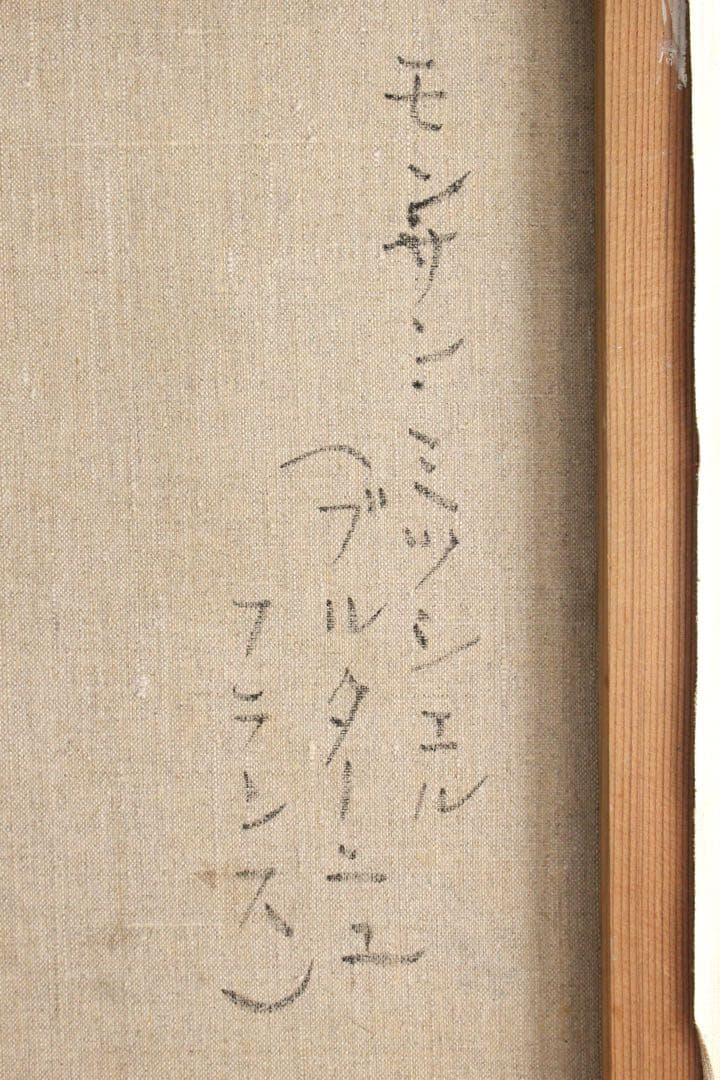 モンサンミッシェル
（ブルターニュ
フランス）